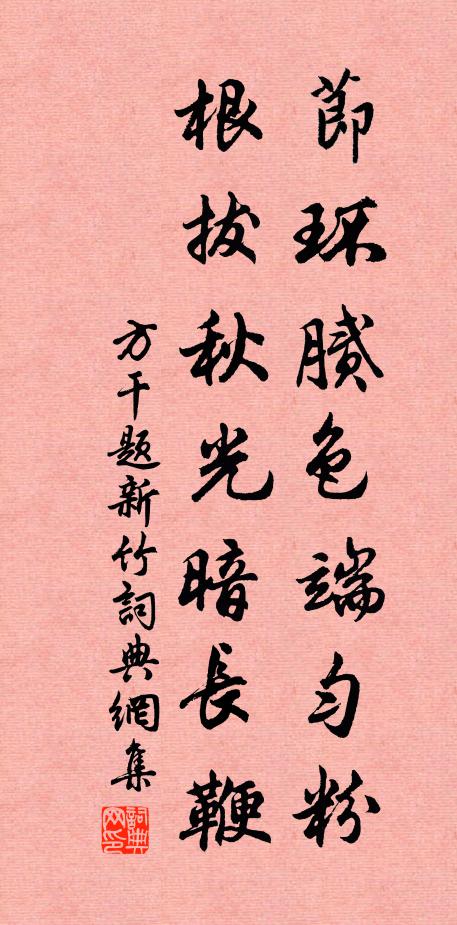 莭环膩色端匀粉
根拔秋光暗長鞭
方干題新竹詞典網集
詞典网印